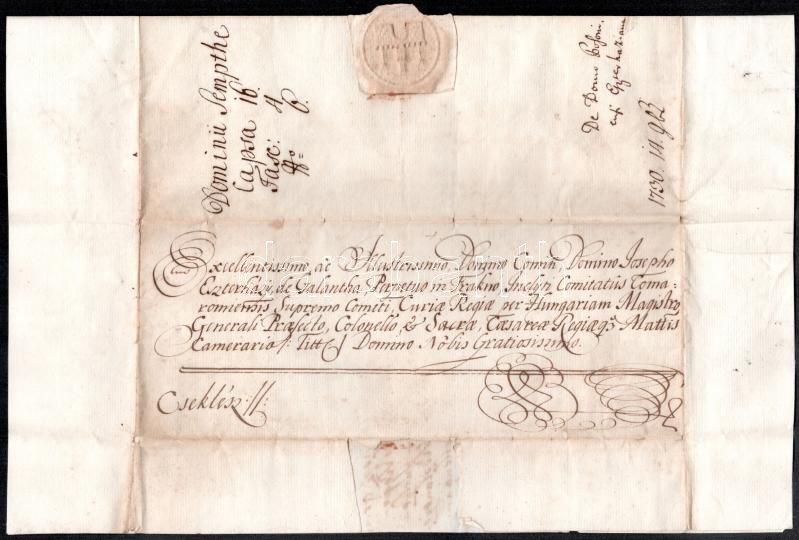 Dominii Sempthe
Capsa 16
Fasc: 4
No 6.
De Domo Posoni.
Eszterhaziana
1730. 14. 9b
Excellentissimo, ac Illustrissimo, Domino Comiti, Domino Josepho
Eszterházi, de Galantha, Perpetuo in Frakno, Inclyti Comitatus Coma-
romiensis Supremo Comiti, Curiæ Regiæ per Hungariam Magistro,
Generali Præfecto, Colonello & Sacræ Cæsareæ Regiæq3 Mattis
Camerario /: Titt :/ Domino Nobis Gratiosissimo.
Cseklész://: